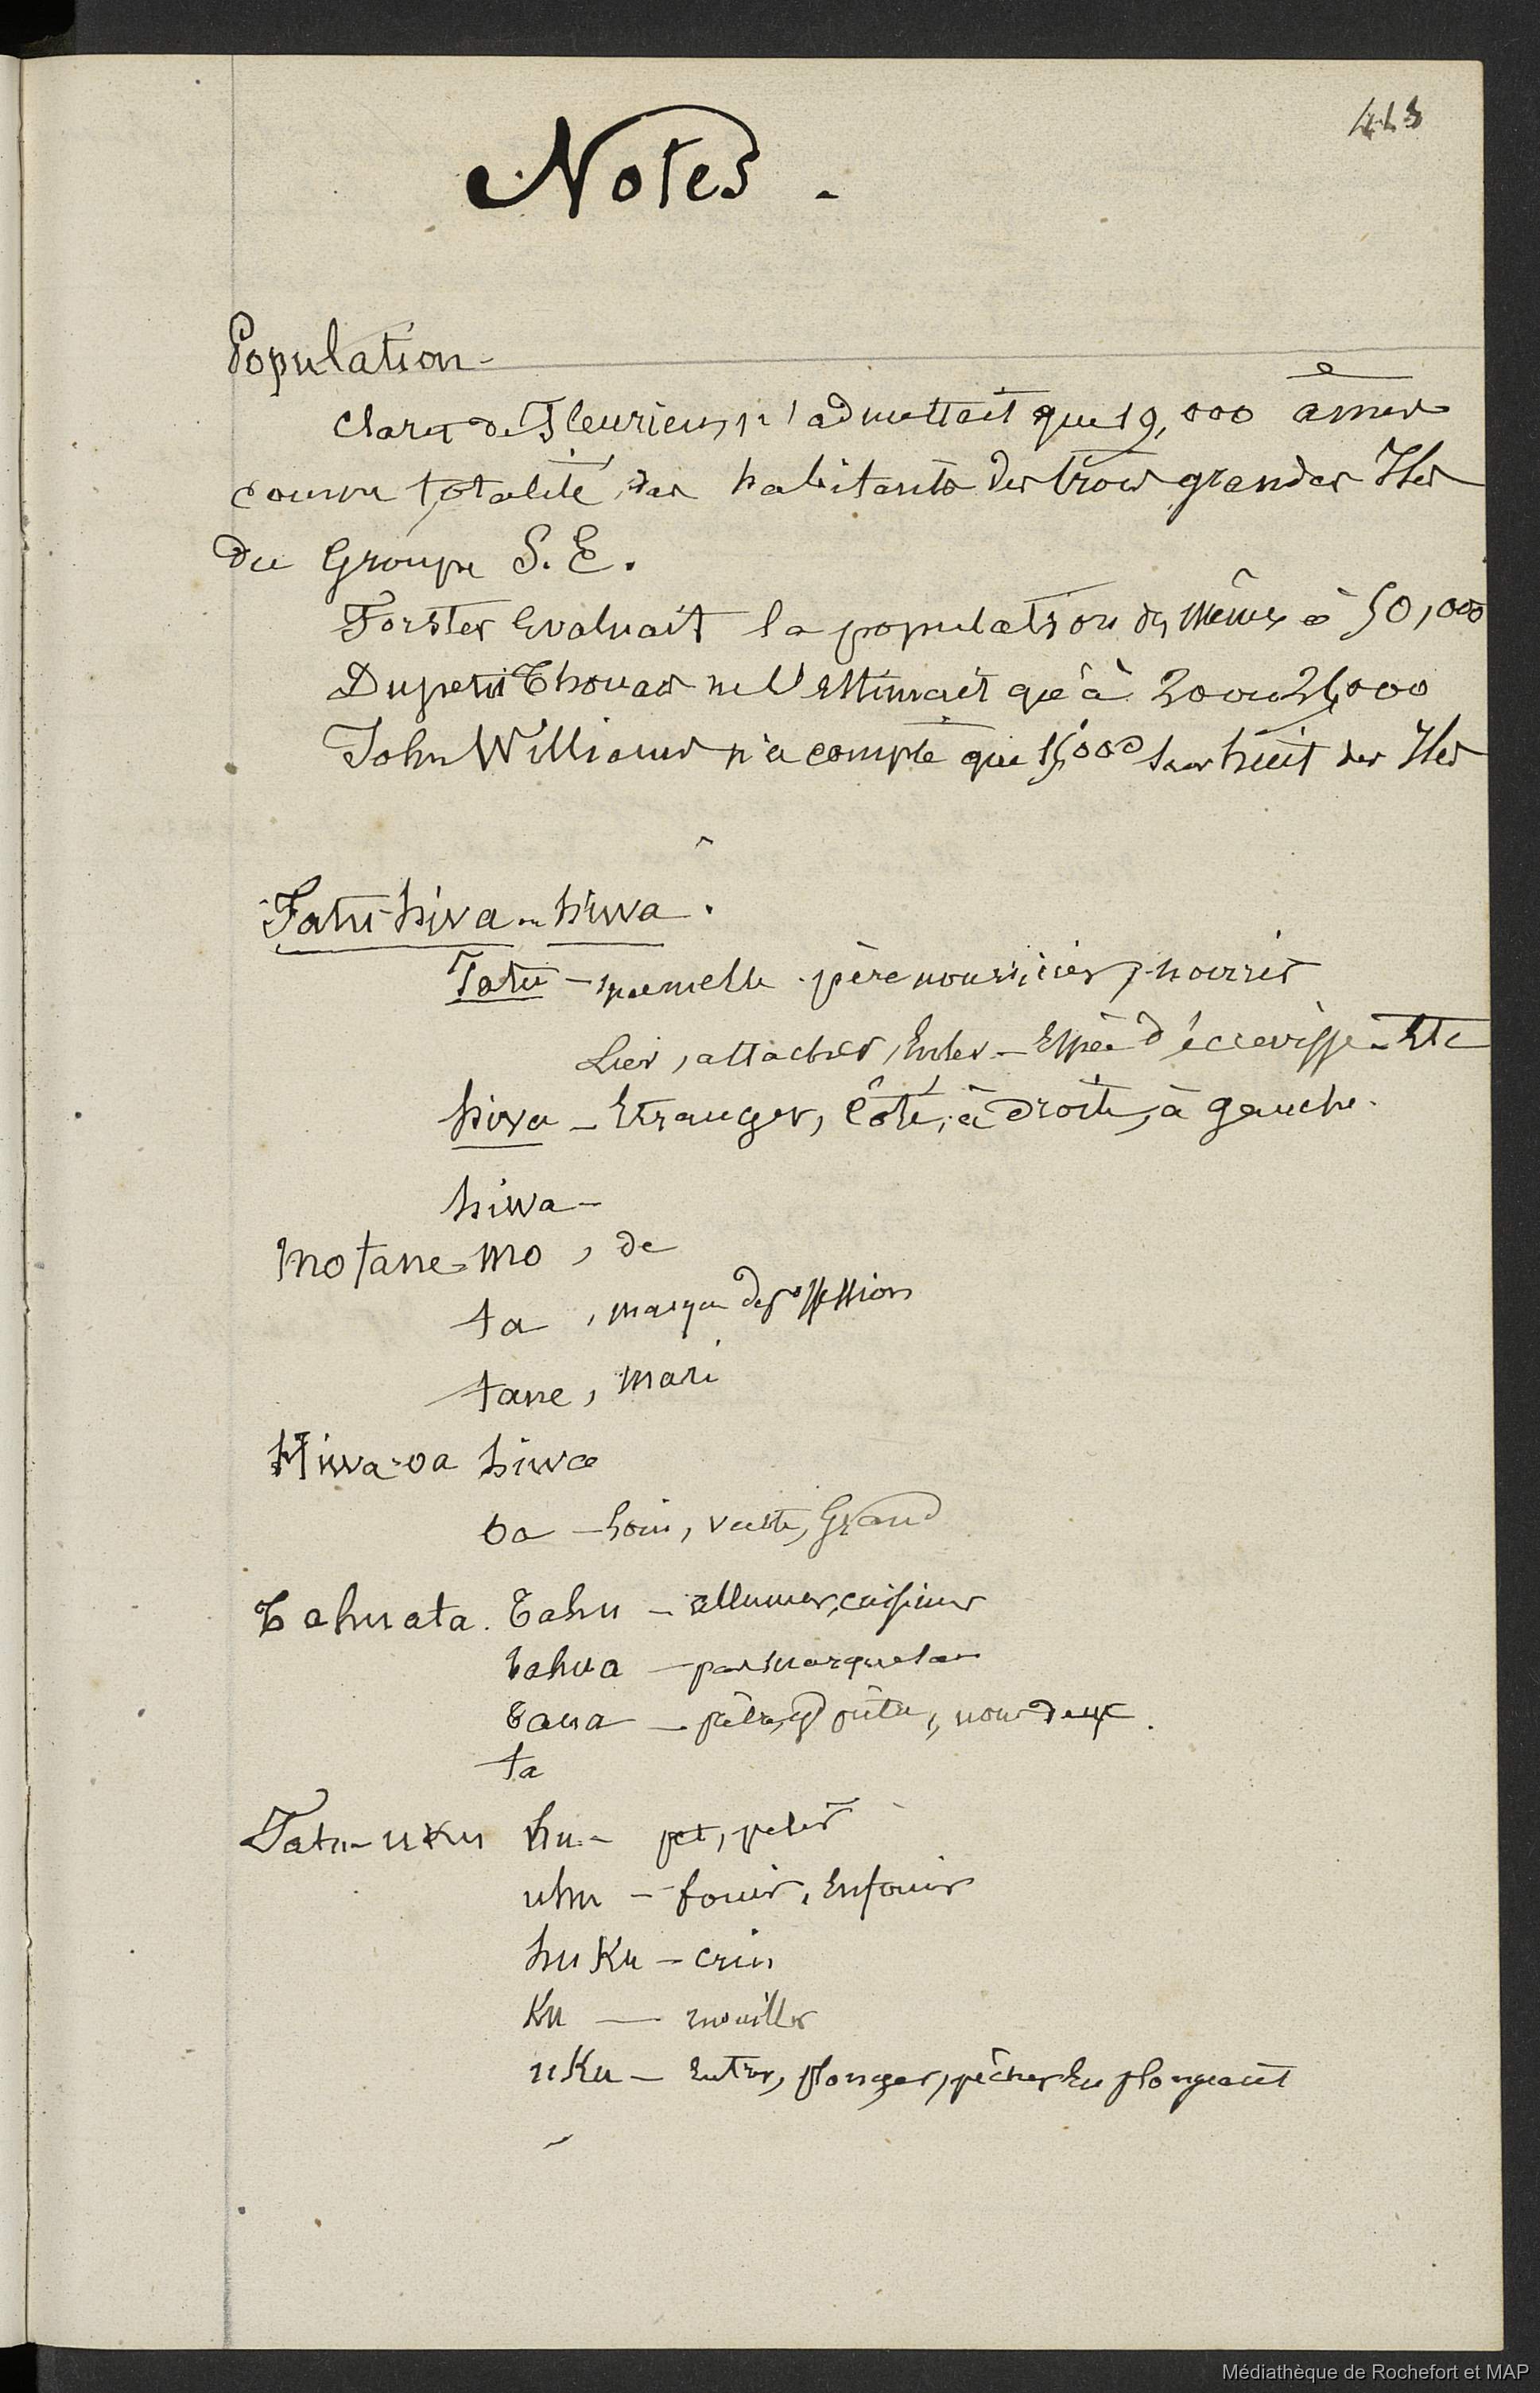 413
Notes.
Population-
Claret de Fleurieu, n'admettait que 19,000 âmes
comme totalité des habitants des trois grandes Iles
du Groupe S. E.
Forster Evaluait la population des mêmes à 50,000
Dupetit Thouars ne l'estimait qu'à 20 ou 21,000
John Williams n'a compté que 15,000 sur huit des Iles
Fatu-hiva ou hiwa.
Fatu - mamelle père nourricier, nourrir
Lier, attacher, Enter - Espèce d'écrevisse - Etc
hiva - Etranger, Côté, à droite, à gauche.
hiwa -
Motane - mo, de
ta, marque de possession
tane, mari
Hiwa-oa hiwa
oa - loin, vaste, Grand
Tahuata. Tahu - allumer, cuisiner
tahua - pas Marquesan
taua - prêtre, nous deux.
ta
Fatu-uku hu - pet, peter
uhu - fouir, Enfouir
huku - crin
Ku - mouiller
uKu - Entrer, plonger, pêcher En plongeant
Médiathèque de Rochefort et MAP